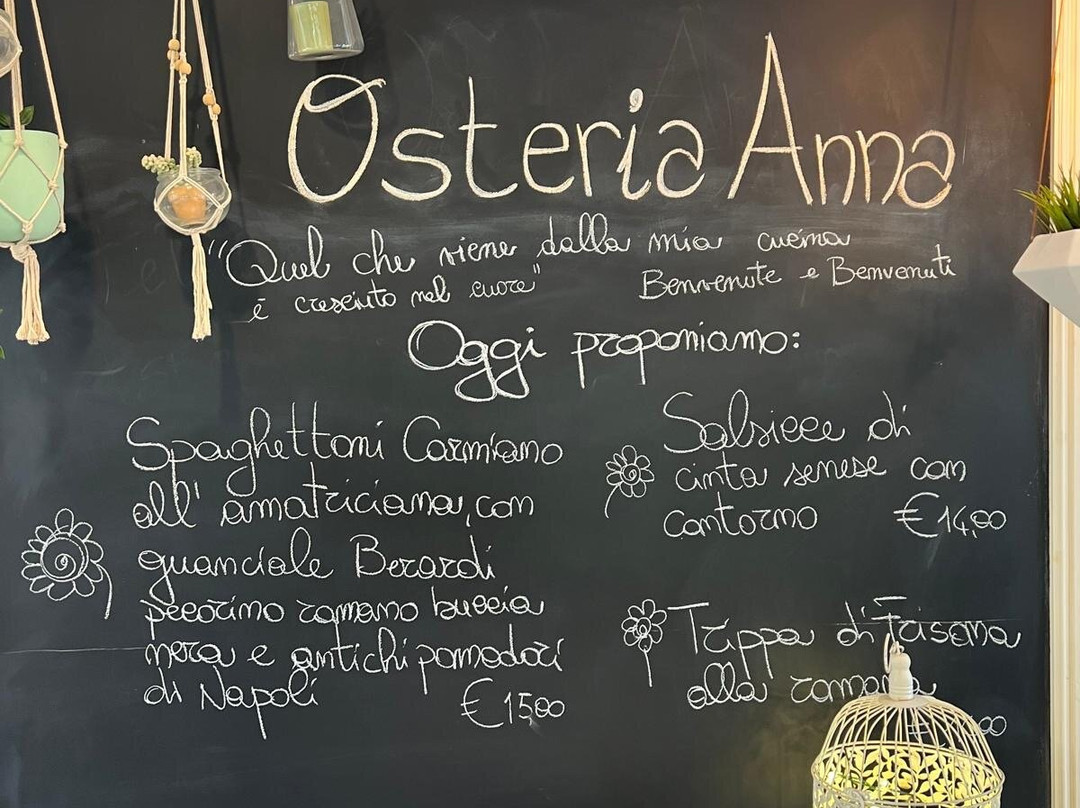 Osteria Anna
"Quel che viene dalla mia cucina
è cresciuto nel cuore"
Benvenute e Benvenuti
Oggi proponiamo:
Spaghettoni Carmiano
all'amatriciana, con
guanciale Berardi
pecorino romano buccia
nera e antichi pomodori
di Napoli
€ 15,00
Salsicce di
cinta senese con
contorno € 14,00
Trippa di Frisona
alla romana